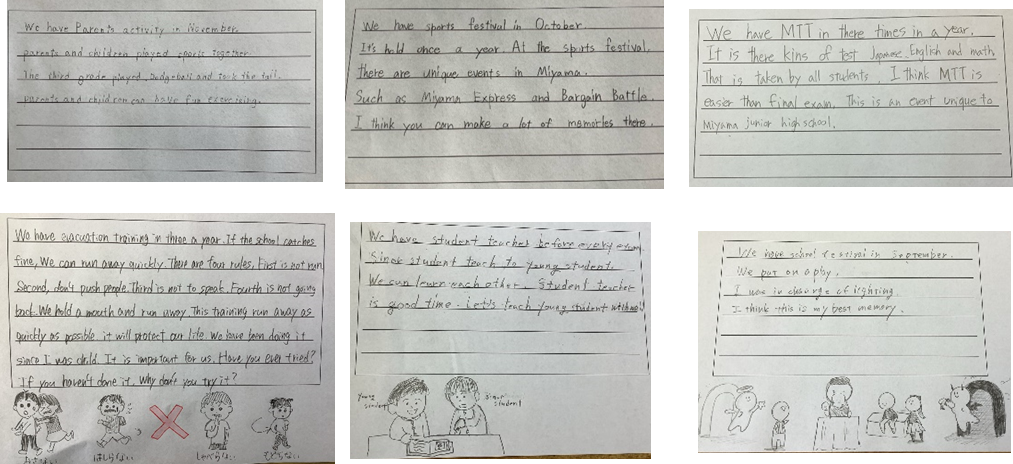 We have Parents activity in November.
parents and children played sports together
The third grade played Dodgeball and took the tail.
parents and children can have fun exercising.
We have sports festival in October.
It's held once a year. At the sports festival,
there are unique events in Miyama.
Such as Miyama Express and Bargain Battle.
I think you can make a lot of memories there.
We have MTT in there times in a year.
It is there kins of test Japanese, English and math
That is taken by all students. I think MTT is
easier than final exam. This is an event unique to
Miyama junior high school.
We have evacuation training in three a year. If the school catches
fine, We can run away quickly. There are four rules, First is not run
Second, don't push people. Third is not to speak. Fourth is not going
back. We hold a mouth and run away. This training run away as
quickly as possible it will protect our life. We have been doing it
since I was child. It is important for us. Have you ever tried?
If you haven't done it, Why don't you try it?
おさない
はしらない
しゃべらない
もどらない
We have student teacher before every exam.
Sinor student teach to young student.
We can learn each other. Student teacher
is good time. Let's teach young student with me!
young student
Sinor student
We have school festival in September.
We put on a play.
I was in charge of lighting.
I think this is my best memory.